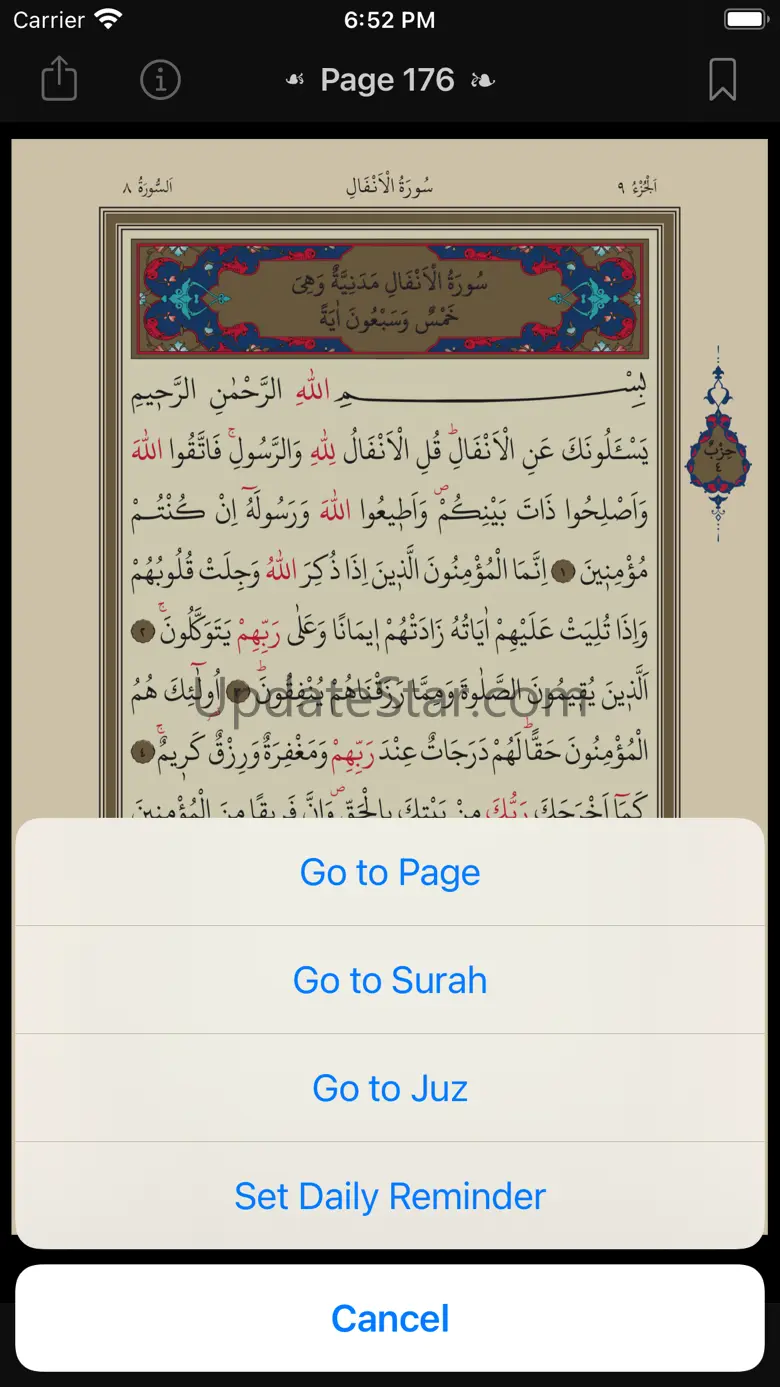 Carrier 6:52 PM
☙ Page 176 ❧
اَلْجُزْءُ ٩ سُورَةُ الْاَنْفَالِ اَلسُّورَةُ ٨
سُورَةُ الْاَنْفَالِ مَدَنِيَّةٌ وَهِىَ
خَمْسٌ وَسَبْعُونَ اٰيَةً
بِسْــــــــمِ اللّٰهِ الرَّحْمٰنِ الرَّح۪يمِ
يَسْـَٔلُونَكَ عَنِ الْاَنْفَالِۜ قُلِ الْاَنْفَالُ لِلّٰهِ وَالرَّسُولِۚ فَاتَّقُوا اللّٰهَ
وَاَصْلِحُوا ذَاتَ بَيْنِكُمْۖ وَاَط۪يعُوا اللّٰهَ وَرَسُولَهُٓ اِنْ كُنْتُــمْ
مُؤْمِن۪ينَ ١ اِنَّمَا الْمُؤْمِنُونَ الَّذ۪ينَ اِذَا ذُكِرَ اللّٰهُ وَجِلَتْ قُلُوبُهُمْ
وَاِذَا تُلِيَتْ عَلَيْهِمْ اٰيَاتُهُ زَادَتْهُمْ ا۪يمَانًا وَعَلٰى رَبِّهِمْ يَتَوَكَّلُونَۚ ٢
اَلَّذ۪ينَ يُق۪يمُونَ الصَّلٰوةَ وَمِمَّا رَزَقْنَاهُمْ يُنْفِقُونَۜ ٣ اُو۬لٰٓئِكَ هُمُ
UpdateStar.com
الْمُؤْمِنُونَ حَقًّاۜ لَهُمْ دَرَجَاتٌ عِنْدَ رَبِّهِمْ وَمَغْفِرَةٌ وَرِزْقٌ كَر۪يمٌۚ ٤
كَمَٓا اَخْرَجَكَ رَبُّكَ مِنْ بَيْتِكَ بِالْحَقِّۖ وَاِنَّ فَر۪يقًا مِنَ الْمُؤْمِن۪ينَ
حِزْبٌ
٤
Go to Page
Go to Surah
Go to Juz
Set Daily Reminder
Cancel